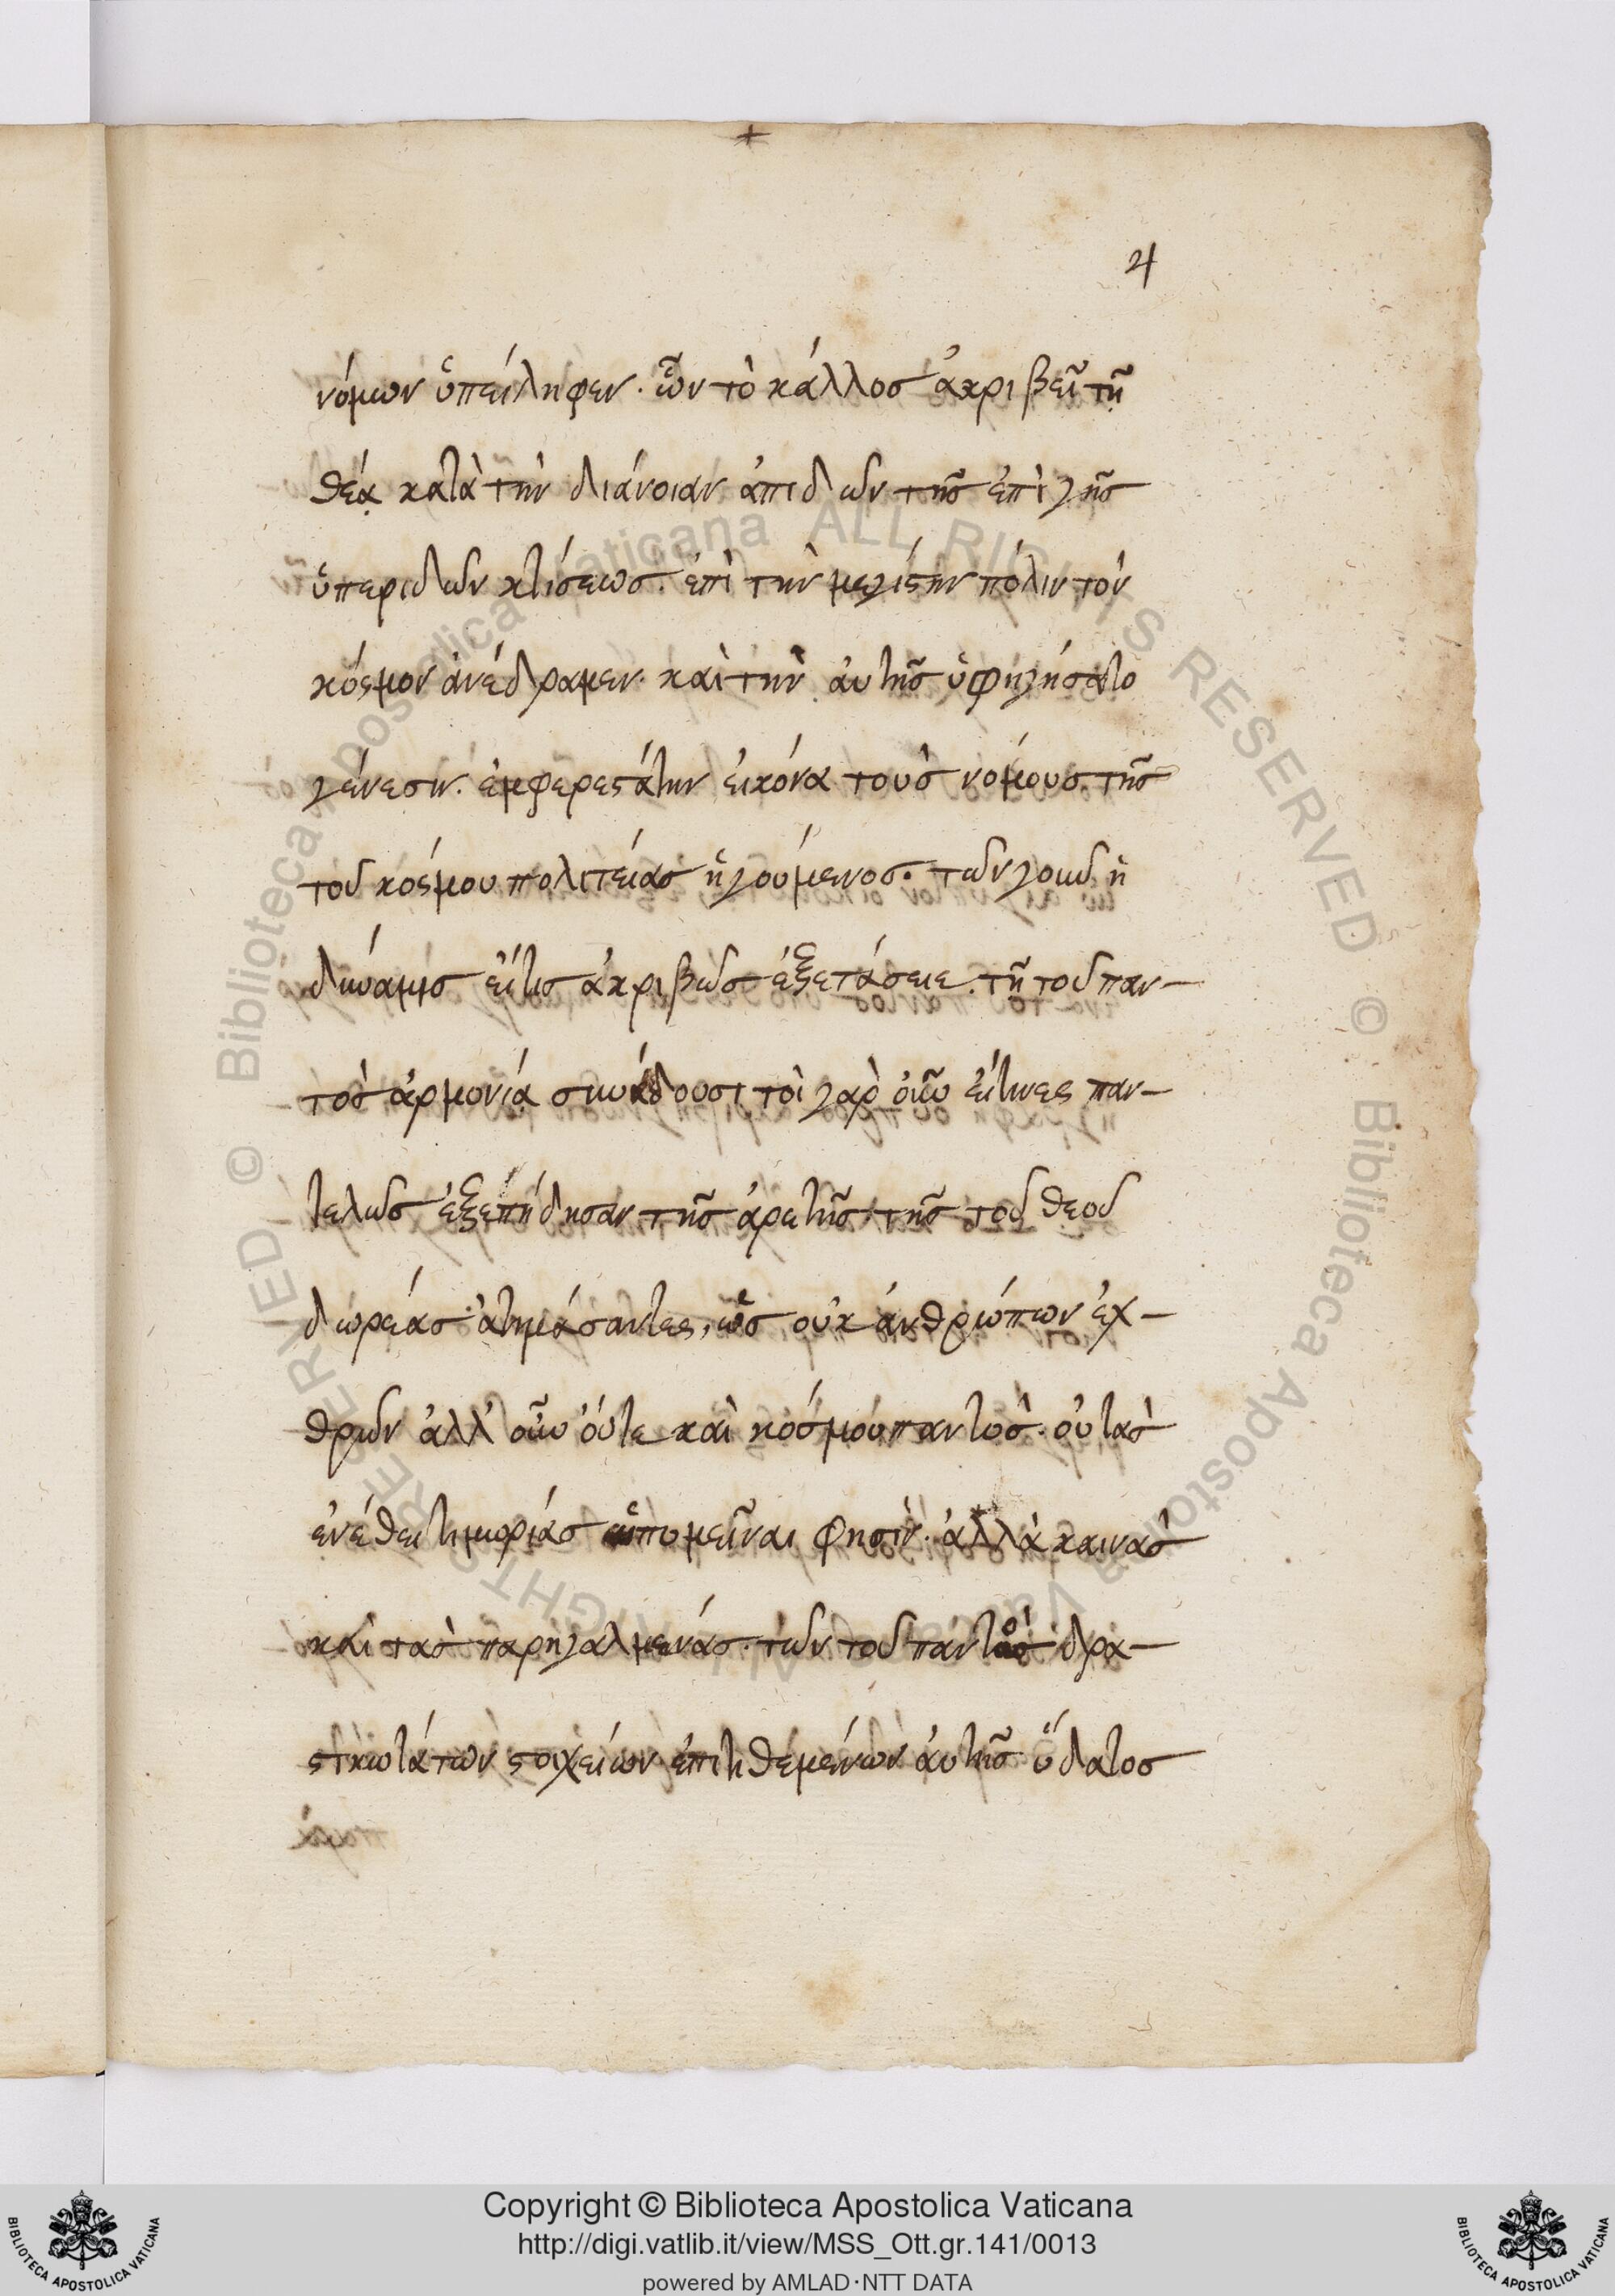 4
νόμων ὑπείληφεν. ὧν τὸ κάλλος ἀκριβεῖ τῇ
θέᾳ κατὰ τὴν διάνοιαν ἀπιδὼν τῆς ἐπὶ γῆς
ὑπεριδὼν κτίσεως. ἐπὶ τὴν μεγίστην πόλιν τὸν
κόσμον ἀνέδραμεν. καὶ τὴν αὐτῆς ὑφηγήσατο
γένεσιν. ἐμφερεστάτην εἰκόνα τοὺς νόμους τῆς
τοῦ κόσμου πολιτείας ἡγούμενος. τῶν γοῦν ἡ
δύναμις εἴ τις ἀκριβῶς ἐξετάσειε. τῇ τοῦ παν-
τὸς ἁρμονίᾳ συνάδουσι τοὶ γὰρ οὖν εἴτινες παν-
τελῶς ἐξεπήδησαν τῆς ἀρετῆς τῆς τοῦ θεοῦ
δωρεάς ἀτιμάσαντες, ὡς οὐκ ἀνθρώπων ἐχ-
θρῶν ἀλλ' οὖν οὔτε καὶ κόσμου παντὸς. οὐ τὰς
ἐν ἔθει τιμωρίας ὑπομεῖναι φησὶν. ἀλλὰ καινὰς
καὶ τὰς παρηγαλμενάς. τῶν τοῦ παντὸς δρα-
στικωτάτων στοιχείων ἐπιτιθεμένων αὐτῆς ὕδατος
Copyright © Biblioteca Apostolica Vaticana
http://digi.vatlib.it/view/MSS_Ott.gr.141/0013
powered by AMLAD·NTT DATA
BIBLIOTECA APOSTOLICA VATICANA
BIBLIOTECA APOSTOLICA VATICANA
© Biblioteca Apostolica Vaticana ALL RIGHTS RESERVED © Biblioteca Apostolica Vaticana ALL RIGHTS RESERVED